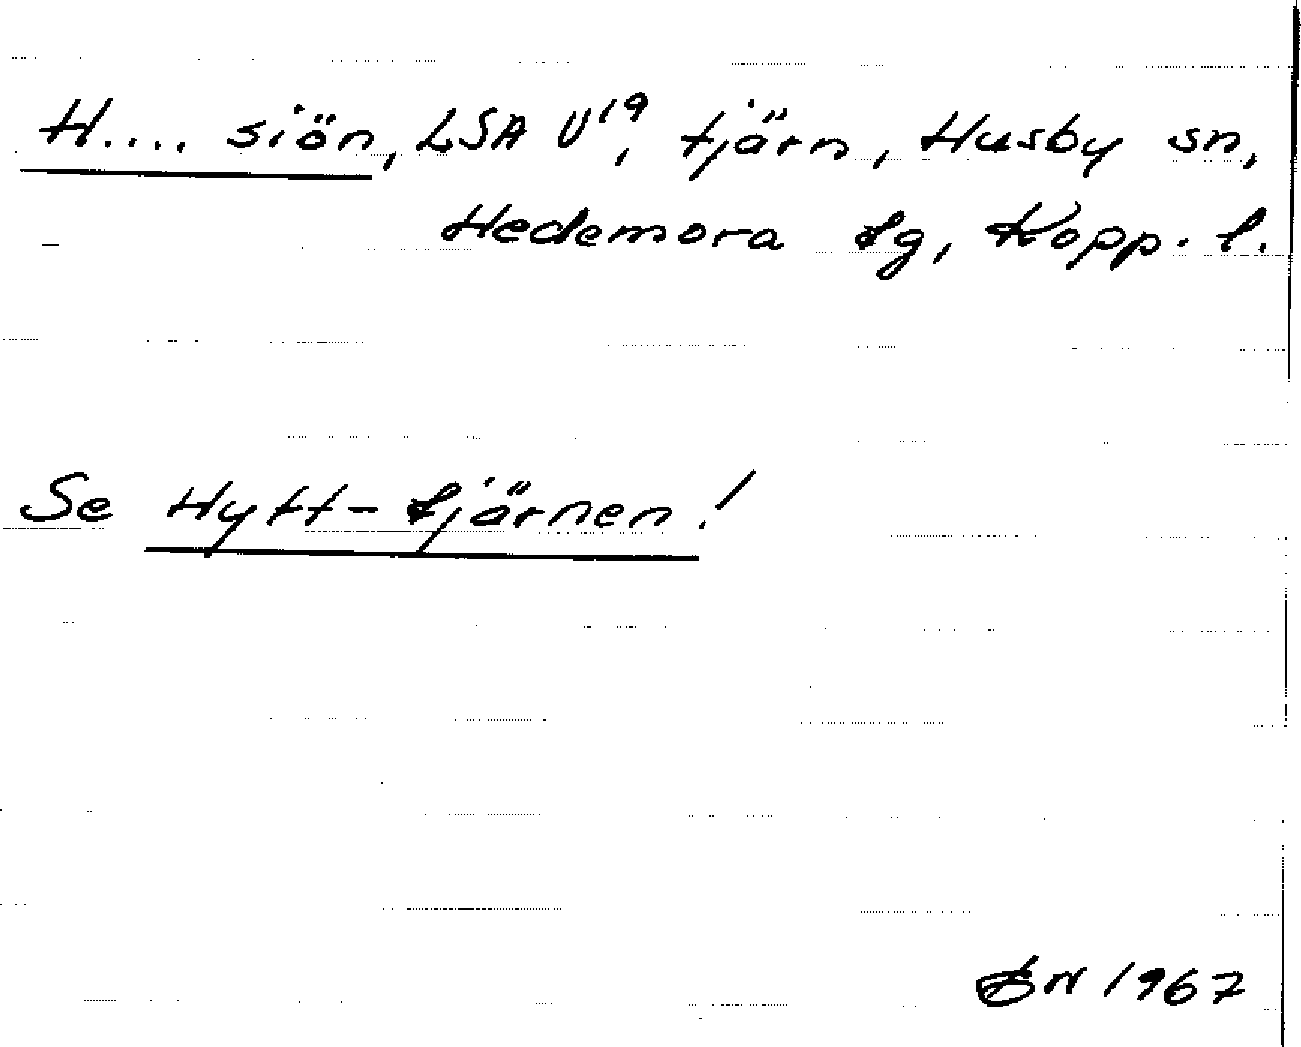 H.... siön, LSA U19, tjärn, Husby sn,
Hedemora tg, Kopp. l.
Se Hytt-tjärnen!
1967